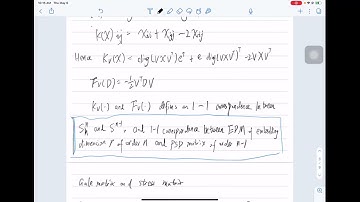 10:15 AM Thu May 6
K(X)ij = xii + xjj − 2xij
Hence Kv(X) = diag(VXVᵀ)eᵀ + e diag(VXVᵀ)ᵀ − 2VXVᵀ
Fv(D) = −½VᵀDV
Kv(·) and Fv(·) defines an 1−1 correspondence between
and Sⁿ⁻¹, and 1−1 correspondence between EDM of embedding
dimension r of order n and PSD matrix of order n−1
Gale matrix and stress matrix